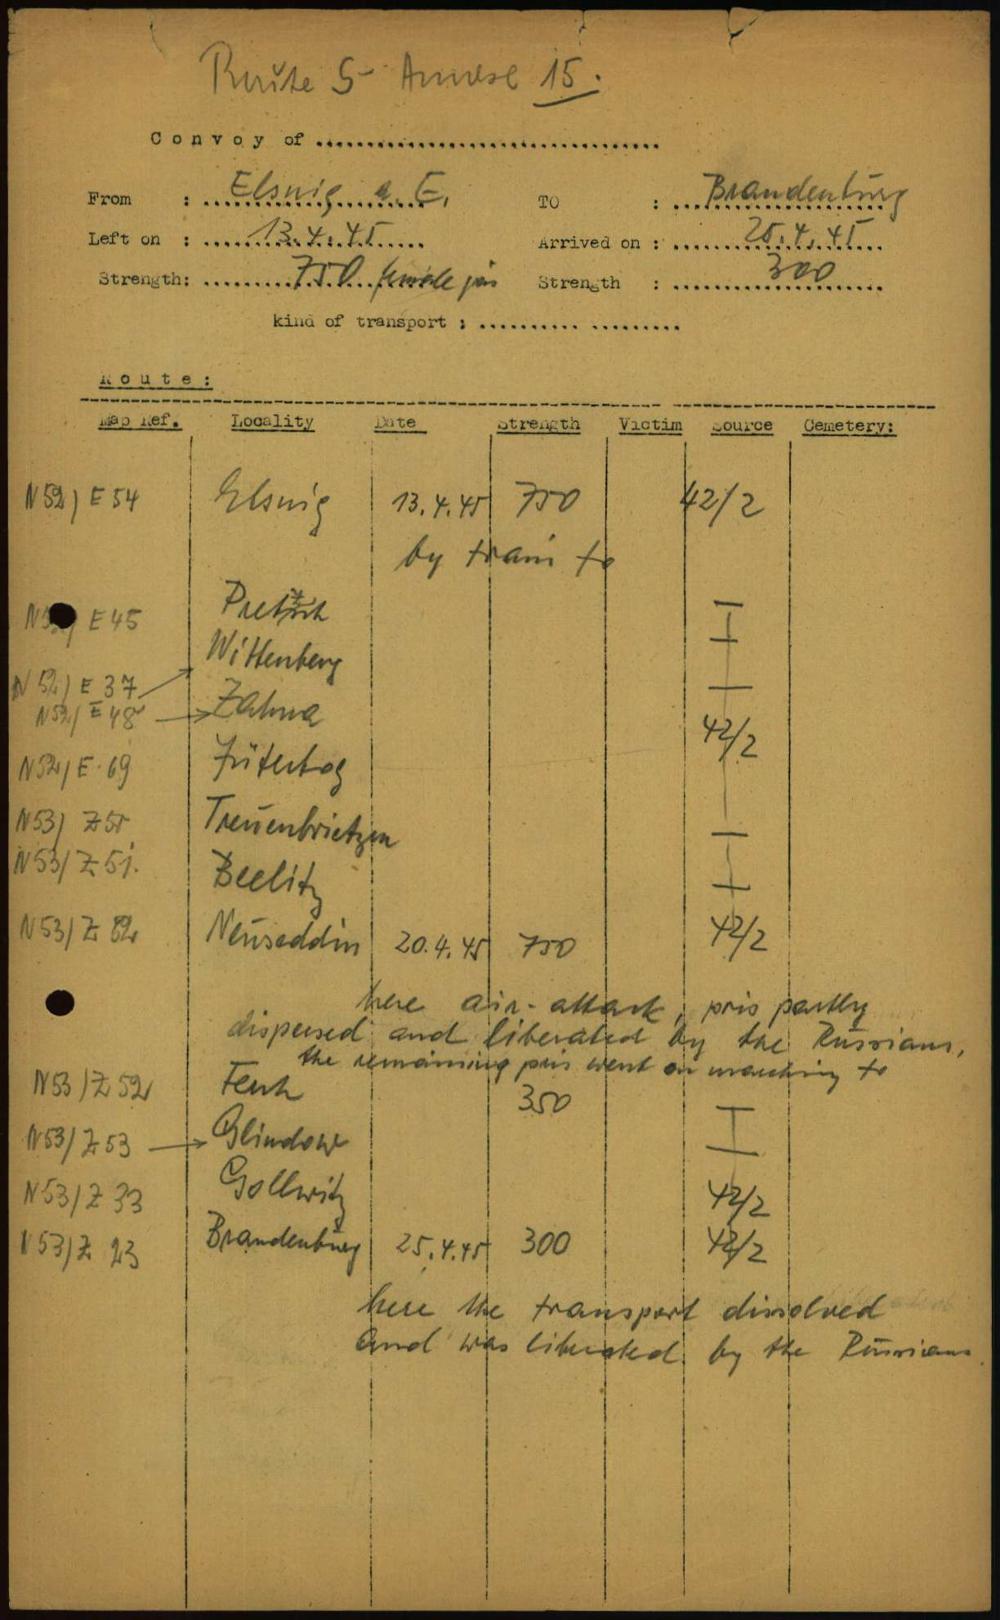 Route 5 Annexe 15.
Convoy of ................................
From : Elsnig a. E. TO : Brandenburg
Left on : 13.4.45 Arrived on : 25.4.45
Strength: 750 female pris Strength : 300
kind of transport : .......... .........
Route:
Map Ref. Locality Date Strength Victim Source Cemetery:
N52/ E54 Elsnig 13.4.45 750 42/2
by train to
E45 Pretzsch
Wittenberg
N52/ E 37
N52/ E 48 Zahna
42/2
N52/ E 69 Jüterbog
N53/ Z 50 Treuenbrietzen
N53/ Z 51. Beelitz
N53/ Z 62 Neuseddin 20.4.45 750 42/2
here air-attack, pris partly
dispersed and liberated by the Russians,
the remaining pris went on marching to
N53/Z 52 Ferch 350
N53/Z 53 Glindow
N53/Z 33 Gollwitz 42/2
N53/Z 23 Brandenburg 25.4.45 300 42/2
here the transport dissolved
and was liberated by the Russians